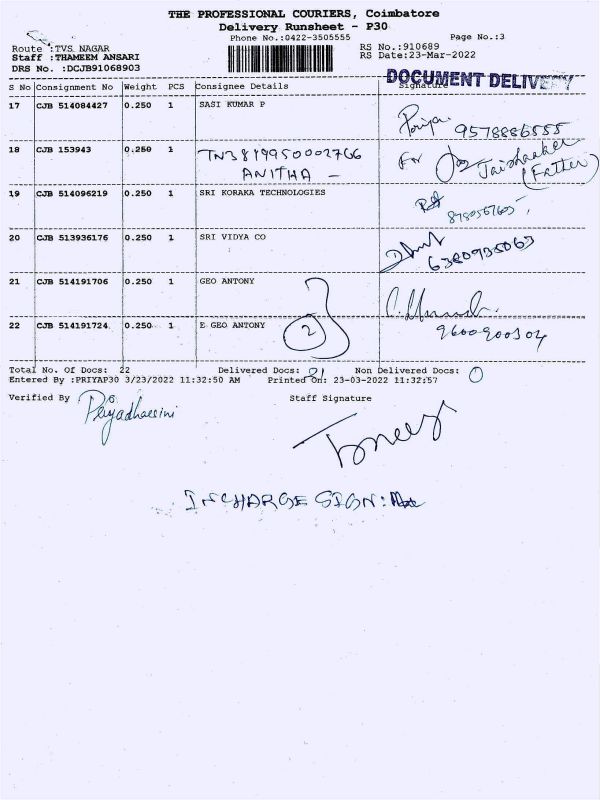 THE PROFESSIONAL COURIERS, Coimbatore
Delivery Runsheet - P30
Phone No.:0422-3505555 Page No.:3
Route :TVS. NAGAR RS No.:910689
Staff :THAMEEM ANSARI RS Date:23-Mar-2022
DRS No. :DCJB91068903
DOCUMENT DELIVERY
S No Consignment No Weight PCS Consignee Details Signature
17 CJB 514084427 0.250 1 SASI KUMAR P
Priya
9578886555
18 CJB 153943 0.250 1 TN3819950002766
ANITHA -
For Jaishanker
(Father)
19 CJB 514096219 0.250 1 SRI KORAKA TECHNOLOGIES
20 CJB 513936176 0.250 1 SRI VIDYA CO
6380935063
21 CJB 514191706 0.250 1 GEO ANTONY
22 CJB 514191724 0.250 1 E GEO ANTONY 2
9600900304
Total No. Of Docs: 22 Delivered Docs: 21 Non Delivered Docs: 0
Entered By :PRIYAP30 3/23/2022 11:32:50 AM Printed On: 23-03-2022 11:32:57
Verified By Staff Signature
Priyadharsini
INCHARGE SIGN: